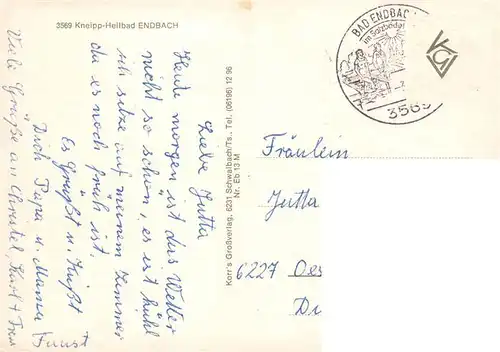 3569 Kneipp-Heilbad ENDBACH
Liebe Jutta
Heute morgen ist das Wetter
nicht so schön, es ist kühl
ich sitze auf meinem Zimmer
da es noch früh ist.
Es Grüßt u. Küßt
Dich Papa u. Mama
Faust
Viele Grüße an Christel, Karl +
Korr's Großverlag, 6231 Schwalbach/Ts., Tel. (06196) 12 96
Nr. Eb 13 M
BAD ENDBAC
im Salzböde
356
Fräulein
Jutta
6227 Oes